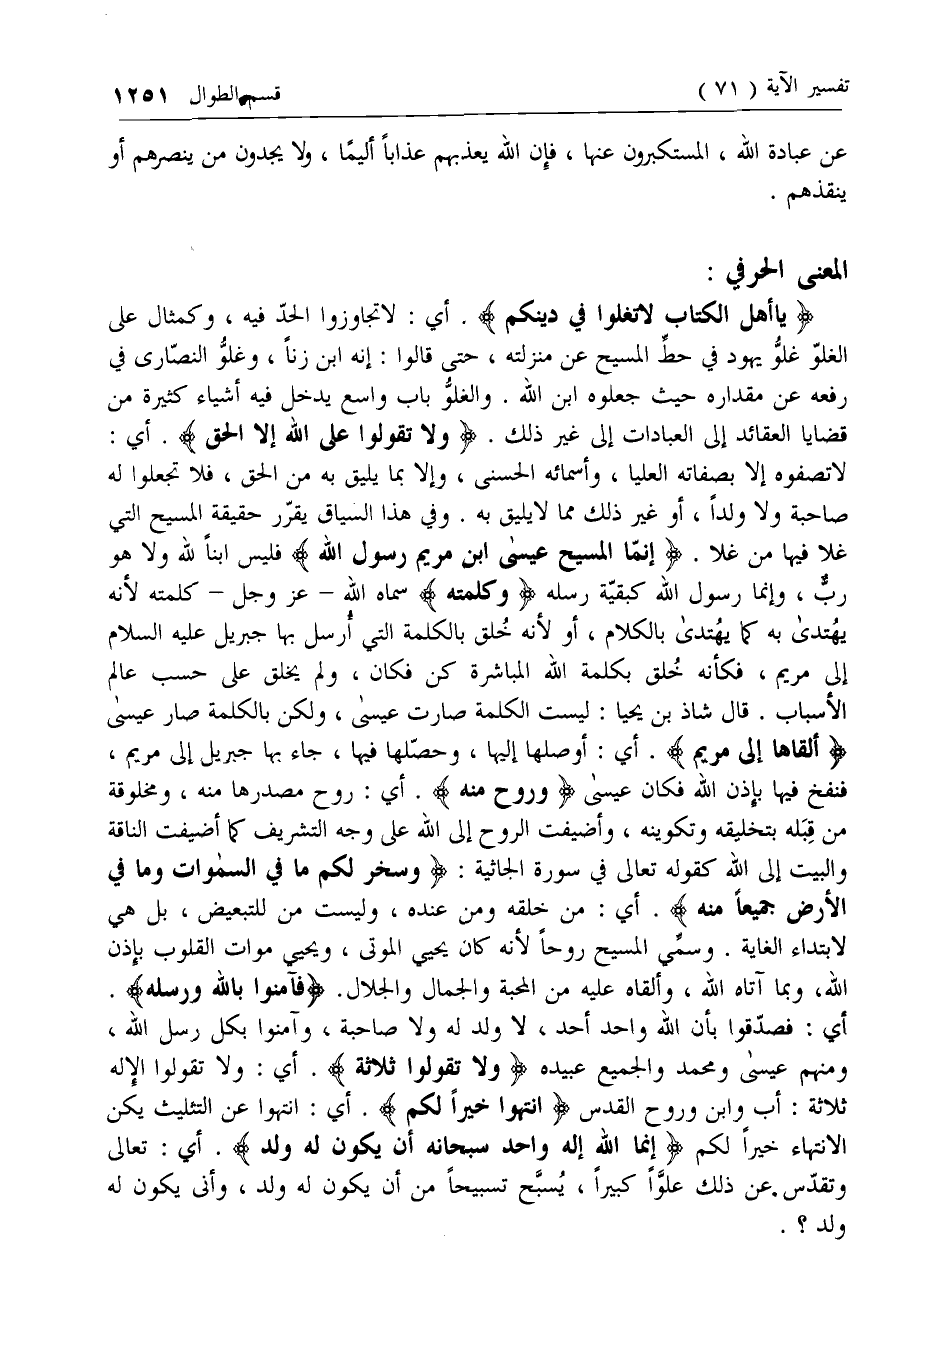 تفسير الآية ( ٧١ )
قسم الطوال ١٢٥١
عن عبادة الله ، المستكبرون عنها ، فإن الله يعذبهم عذاباً أليمًا ، ولا يجدون من ينصرهم أو
ينقذهم .
المعنى الحرفي :
﴿ ياأهل الكتاب لاتغلوا في دينكم ﴾ . أي : لاتجاوزوا الحدّ فيه ، وكمثال على
الغلوّ غلوُّ يهود في حطِّ المسيح عن منزلته ، حتى قالوا : إنه ابن زناً ، وغلوُّ النصّارى في
رفعه عن مقداره حيث جعلوه ابن الله . والغلوُّ باب واسع يدخل فيه أشياء كثيرة من
قضايا العقائد إلى العبادات إلى غير ذلك . ﴿ ولا تقولوا على الله إلا الحق ﴾ . أي :
لاتصفوه إلا بصفاته العليا ، وأسمائه الحسنى ، وإلا بما يليق به من الحق ، فلا تجعلوا له
صاحبة ولا ولداً ، أو غير ذلك مما لايليق به . وفي هذا السياق يقرّر حقيقة المسيح التي
غلا فيها من غلا . ﴿ إنمّا المسيح عيسىٰ ابن مريم رسول الله ﴾ فليس ابناً لله ولا هو
ربٌّ ، وإنما رسول الله كبقيّة رسله ﴿ وكلمته ﴾ سماه الله – عز وجل – كلمته لأنه
يهُتدىٰ به كما يهُتدىٰ بالكلام ، أو لأنه خُلق بالكلمة التي أُرسل بها جبريل عليه السلام
إلى مريم ، فكأنه خُلق بكلمة الله المباشرة كن فكان ، ولم يخلق على حسب عالم
الأسباب . قال شاذ بن يحيا : ليست الكلمة صارت عيسىٰ ، ولكن بالكلمة صار عيسىٰ
﴿ ألقاها إلى مريم ﴾ . أي : أوصلها إليها ، وحصّلها فيها ، جاء بها جبريل إلى مريم ،
فنفخ فيها بإذن الله فكان عيسىٰ ﴿ وروح منه ﴾ . أي : روح مصدرها منه ، ومخلوقة
من قِبَله بتخليقه وتكوينه ، وأضيفت الروح إلى الله على وجه التشريف كما أضيفت الناقة
والبيت إلى الله كقوله تعالى في سورة الجاثية : ﴿ وسخر لكم ما في السمٰوات وما في
الأرض جميعاً منه ﴾ . أي : من خلقه ومن عنده ، وليست من للتبعيض ، بل هي
لابتداء الغاية . وسمِّي المسيح روحاً لأنه كان يحيي الموتى ، ويحيي موات القلوب بإذن
الله، وبما آتاه الله ، وألقاه عليه من المحبة والجمال والجلال. ﴿فآمنوا بالله ورسله﴾ .
أي : فصدّقوا بأن الله واحد أحد ، لا ولد له ولا صاحبة ، وآمنوا بكل رسل الله ،
ومنهم عيسىٰ ومحمد والجميع عبيده ﴿ ولا تقولوا ثلاثة ﴾ . أي : ولا تقولوا الإله
ثلاثة : أب وابن وروح القدس ﴿ انتهوا خيراً لكم ﴾ . أي : انتهوا عن التثليث يكن
الانتهاء خيراً لكم ﴿ إنما الله إله واحد سبحانه أن يكون له ولد ﴾ . أي : تعالى
وتقدّس عن ذلك علوَّاً كبيراً ، يُسبَّح تسبيحاً من أن يكون له ولد ، وأنى يكون له
ولد ؟ .